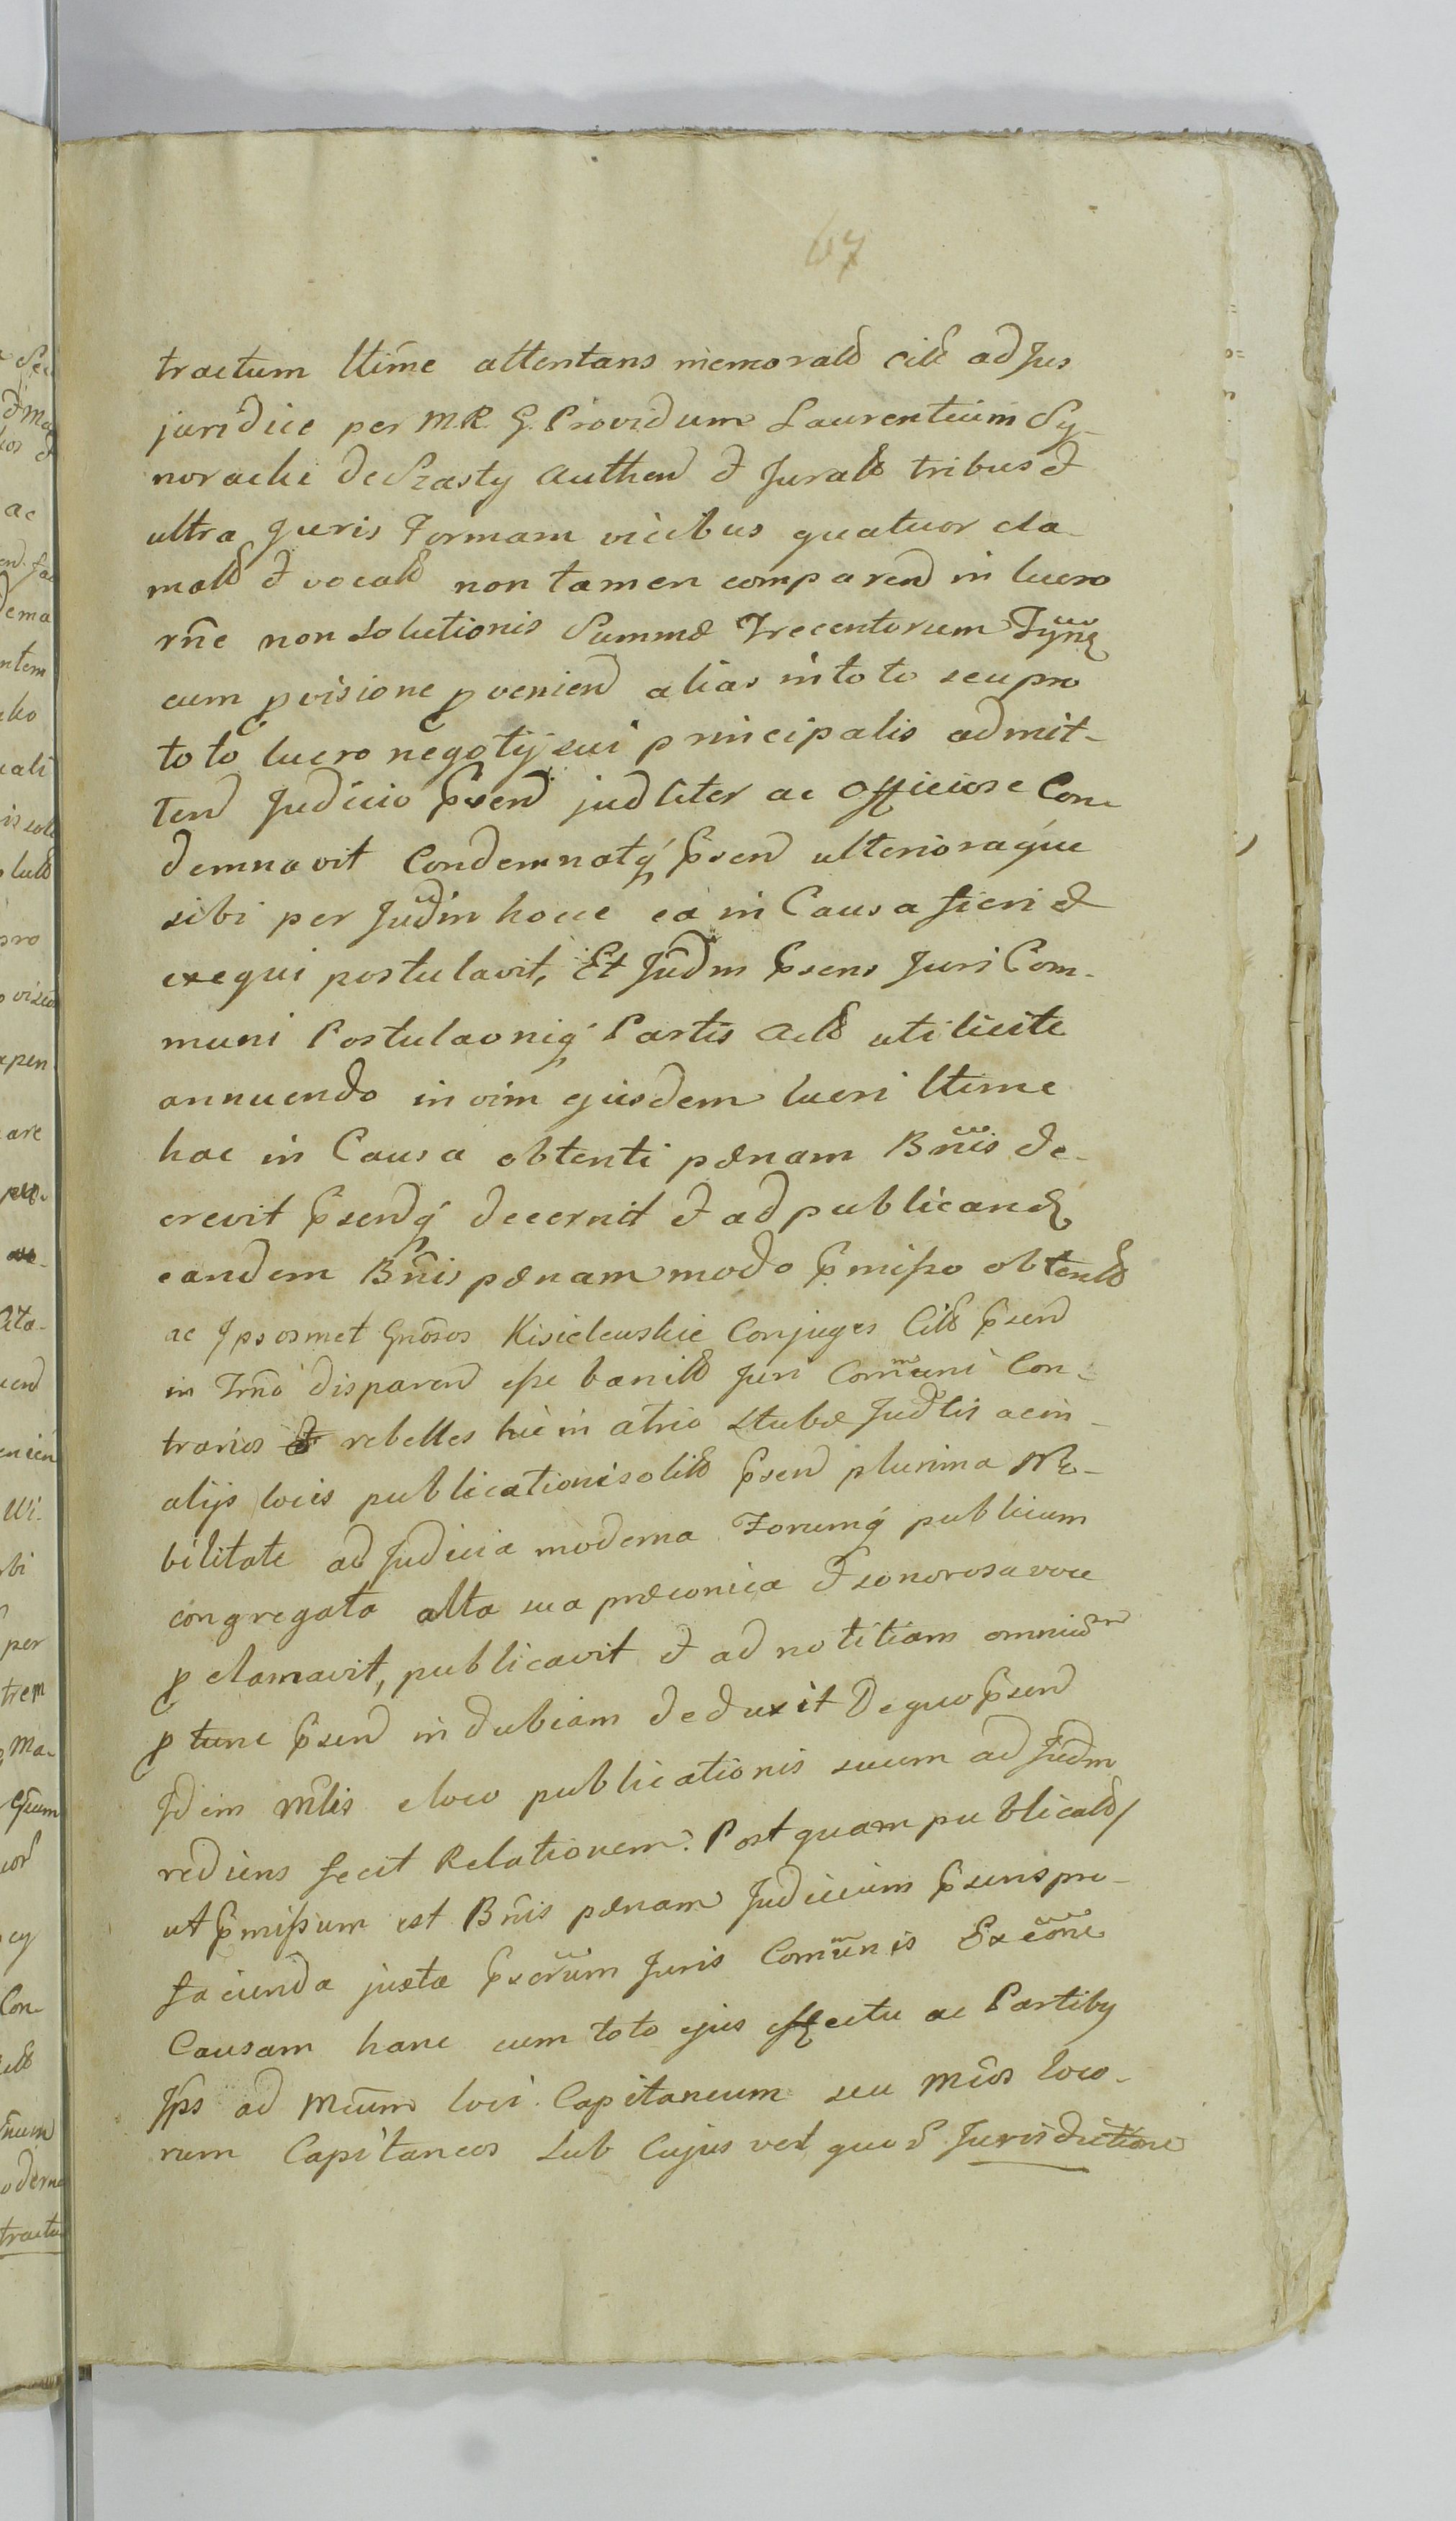 67
tractum ltime attentans memoratt citt ad Jus
juridice per M.R. G. Providum Laurentium Sy-
noracki de Szasty Authen et Juratt tribus et
ultra Juris Formam vicibus quatuor cla-
matt et vocatt non tamen comparend in lucro
rñe non solutionis Summæ Trecentorum
cum pvisione pveniend alias in toto seu pro
toto lucro negotij sui principalis admit-
tend Judicio pñsend judliter ac officiose Con-
demnavit Condemnatq́ pñsend ulterioraque
sibi per Judm hocce ea in Causa fieri et
exequi postulavit, Et Judm pñsens Juri Com-
muni Postulaoniq́ Partis Actt uti licite
annuendo in vim ejusdem lucri ltime
hac in Causa obtenti pænam Bñis de-
crevit pñsendq́ decernit et ad publicand
eandem Bñis pænam modo pmisso obtentt
ac Ipsosmet Gnõsos Kisielewskie Conjuges Citt pñsend
in Trño disparend esse banitt Juri Com̃uni Con-
trarios et rebelles hic in atrio Stubæ Judlis ac in
alijs locis publicationi solitt pñsend plurima No-
bilitate ad Judicia moderna Forumq́ publicum
congregata alta sua præconica et sonorosa voce
pclamavit, publicavit et ad notitiam omnium
ptunc pñsend indubiam deduxit De quo pñsend
Idem Mlis e loco publicationis suum ad Judm
rediens fecit Relationem. Postquam publicatt
ut pmissum est Bñis pænam Judicium pñsens pro-
facienda juxta pñserum Juris Com̃unis Exeõne
Causam hanc cum toto ejus effectu ac Partibq
Ips ad Mcum loci Capitaneum seu Mcos loco-
rum Capitaneos sub Cujus vel quod Jurisdictione